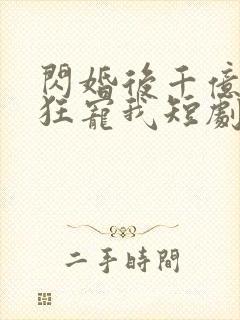 閃婚後千億
狂寵我短劇
二手時間